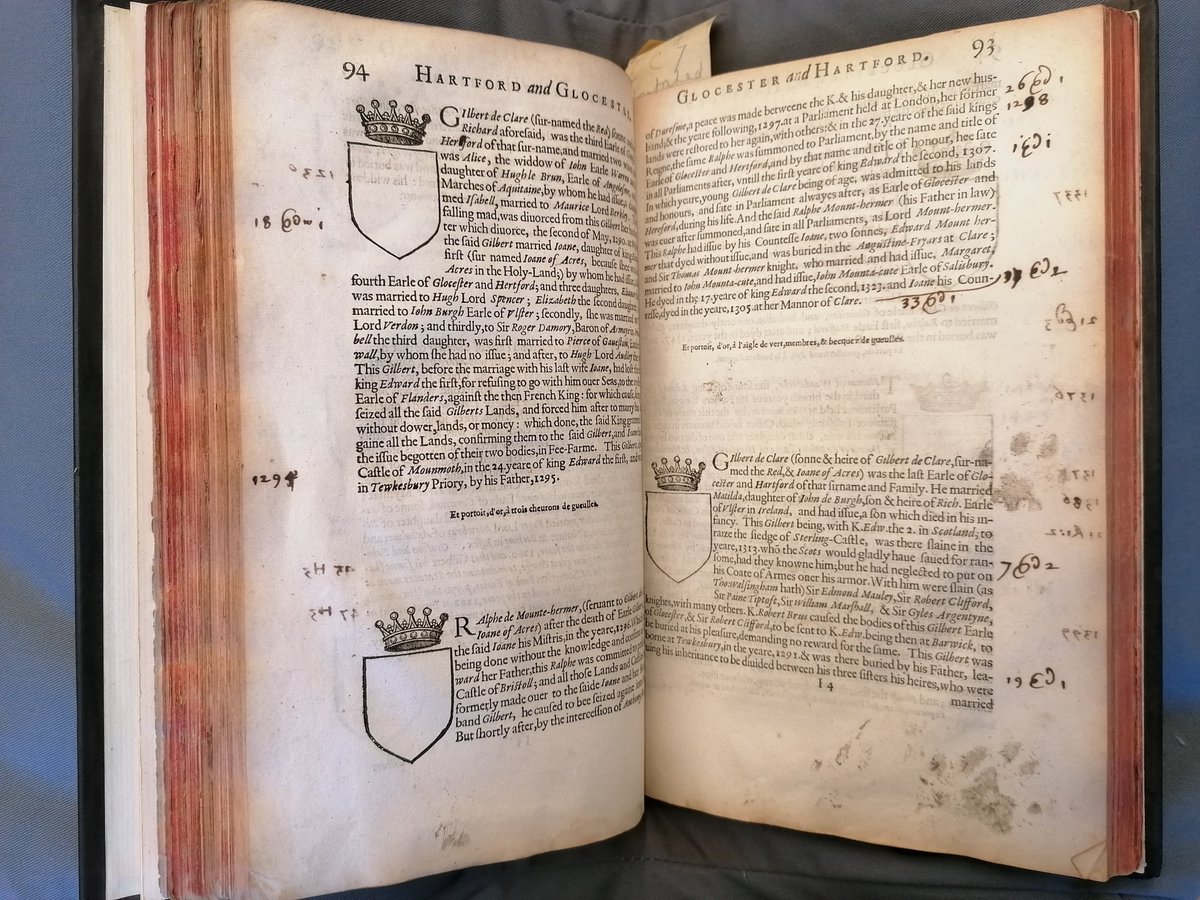 94 HARTFORD and GLOCEST
GIlbert de Clare (sur-named the Red) sonne
Richard aforesaid, was the third Earle of
Hertford of that sur-name, and married two
was Alice, the widdow of Iohn Earle Warren
daughter of Hugh le Brun, Earle of
Marches of Aquitaine, by whom he had issue,
med Isabell, married to Maurice Lord Berkley.
falling mad, was diuorced from this Gilbert her
ter which diuorce, the second of May, 1290.
the said Gilbert married Ioane, daughter of king
first (sur named Ioane of Acres, because shee was
Acres in the Holy-Land;) by whom he had issue,
fourth Earle of Glocester and Hertford; and three daughters,
was married to Hugh Lord Spencer; Elizabeth the second daughter
married to Iohn Burgh Earle of Vlster; secondly, she was married
Lord Verdon; and thirdly, to Sir Roger Damory, Baron of
bell the third daughter, was first married to Pierce of Gauestun,
wall, by whom she had no issue; and after, to Hugh Lord Audley
This Gilbert, before the marriage with his last wife Ioane, had lost
king Edward the first, for refusing to go with him ouer Seas, to the
Earle of Flanders, against the then French King: for which cause,
seized all the said Gilberts Lands, and forced him after to marry his
without dower, lands, or money: which done, the said King
gaine all the Lands, confirming them to the said Gilbert, and
the issue begotten of their two bodies, in Fee-Farme. This Gilbert,
Castle of Mounmoth, in the 24. yeare of king Edward the first, and
in Tewkesbury Priory, by his Father, 1295.
Et portoit, d'or, à trois cheurons de gueulles.
RAlphe de Mounte-hermer, (seruant to Gilbert
Ioane of Acres) after the death of Earle
the said Ioane his Mistris, in the yeare,
being done without the knowledge and consent
ward her Father, this Ralphe was committed to
Castle of Bristoll; and all those Lands and
formerly made ouer to the saide Ioane and her
band Gilbert, he caused to bee seized againe
But shortly after, by the intercession of
GLOCESTER and HARTFORD. 93
of Duresme, a peace was made betweene the K. & his daughter, & her new hus-
band; & the yeare following, 1297. at a Parliament held at London, her former
lands were restored to her again, with others: & in the 27. yeare of the said kings
Reigne, the same Ralphe was summoned to Parliament, by the name and title of
Earle of Glocester and Hertford, and by that name and title of honour, hee sate
in all Parliaments after, vntill the first yeare of king Edward the second, 1307.
In which yeare, young Gilbert de Clare being of age, was admitted to his lands
and honours, and sate in Parliament alwayes after, as Earle of Glocester and
Hereford, during his life. And the said Ralphe Mount-hermer (his Father in law)
was euer after summoned, and sate in all Parliaments, as Lord Mount-hermer.
This Ralphe had issue by his Countesse Ioane, two sonnes, Edward Mount her-
mer that dyed without issue, and was buried in the Augustine-Fryars at Clare;
and Sir Thomas Mount-hermer knight, who married and had issue, Margaret,
married to Iohn Mounta-cute, and had issue, Iohn Mounta-cute Earle of Salisbury.
He dyed in the 17. yeare of king Edward the second, 1323. and Ioane his Coun-
tesse, dyed in the yeare, 1305. at her Mannor of Clare.
Et portoit, d'or, à l'aigle de vert, membres, & becquez de gueulles.
GIlbert de Clare (sonne & heire of Gilbert de Clare, sur-na-
med the Red, & Ioane of Acres) was the last Earle of Glo-
cester and Hartford of that sirname and Family. He married
Matilda, daughter of Iohn de Burgh, son & heire of Rich. Earle
of Vlster in Ireland, and had issue, a son which died in his in-
fancy. This Gilbert being, with K. Edw. the 2. in Scotland, to
raize the siedge of Sterling-Castle, was there slaine in the
yeare, 1313. whō the Scots would gladly haue saued for ran-
some, had they knowne him; but he had neglected to put on
his Coate of Armes ouer his armor. With him were slain (as
Tho. Walsingham hath) Sir Edmond Mauley, Sir Robert Clifford,
Sir Paine Tiptoft, Sir William Marshall, & Sir Gyles Argentyne,
knights, with many others. K. Robert Brus caused the bodies of this Gilbert Earle
of Glocester, & Sir Robert Clifford, to be sent to K. Edw. being then at Barwick, to
be buried at his pleasure, demanding no reward for the same. This Gilbert was
borne at Tewkesbury, in the yeare, 1291. & was there buried by his Father, lea-
uing his inheritance to be diuided between his three sisters his heires, who were
I 4
married
1298